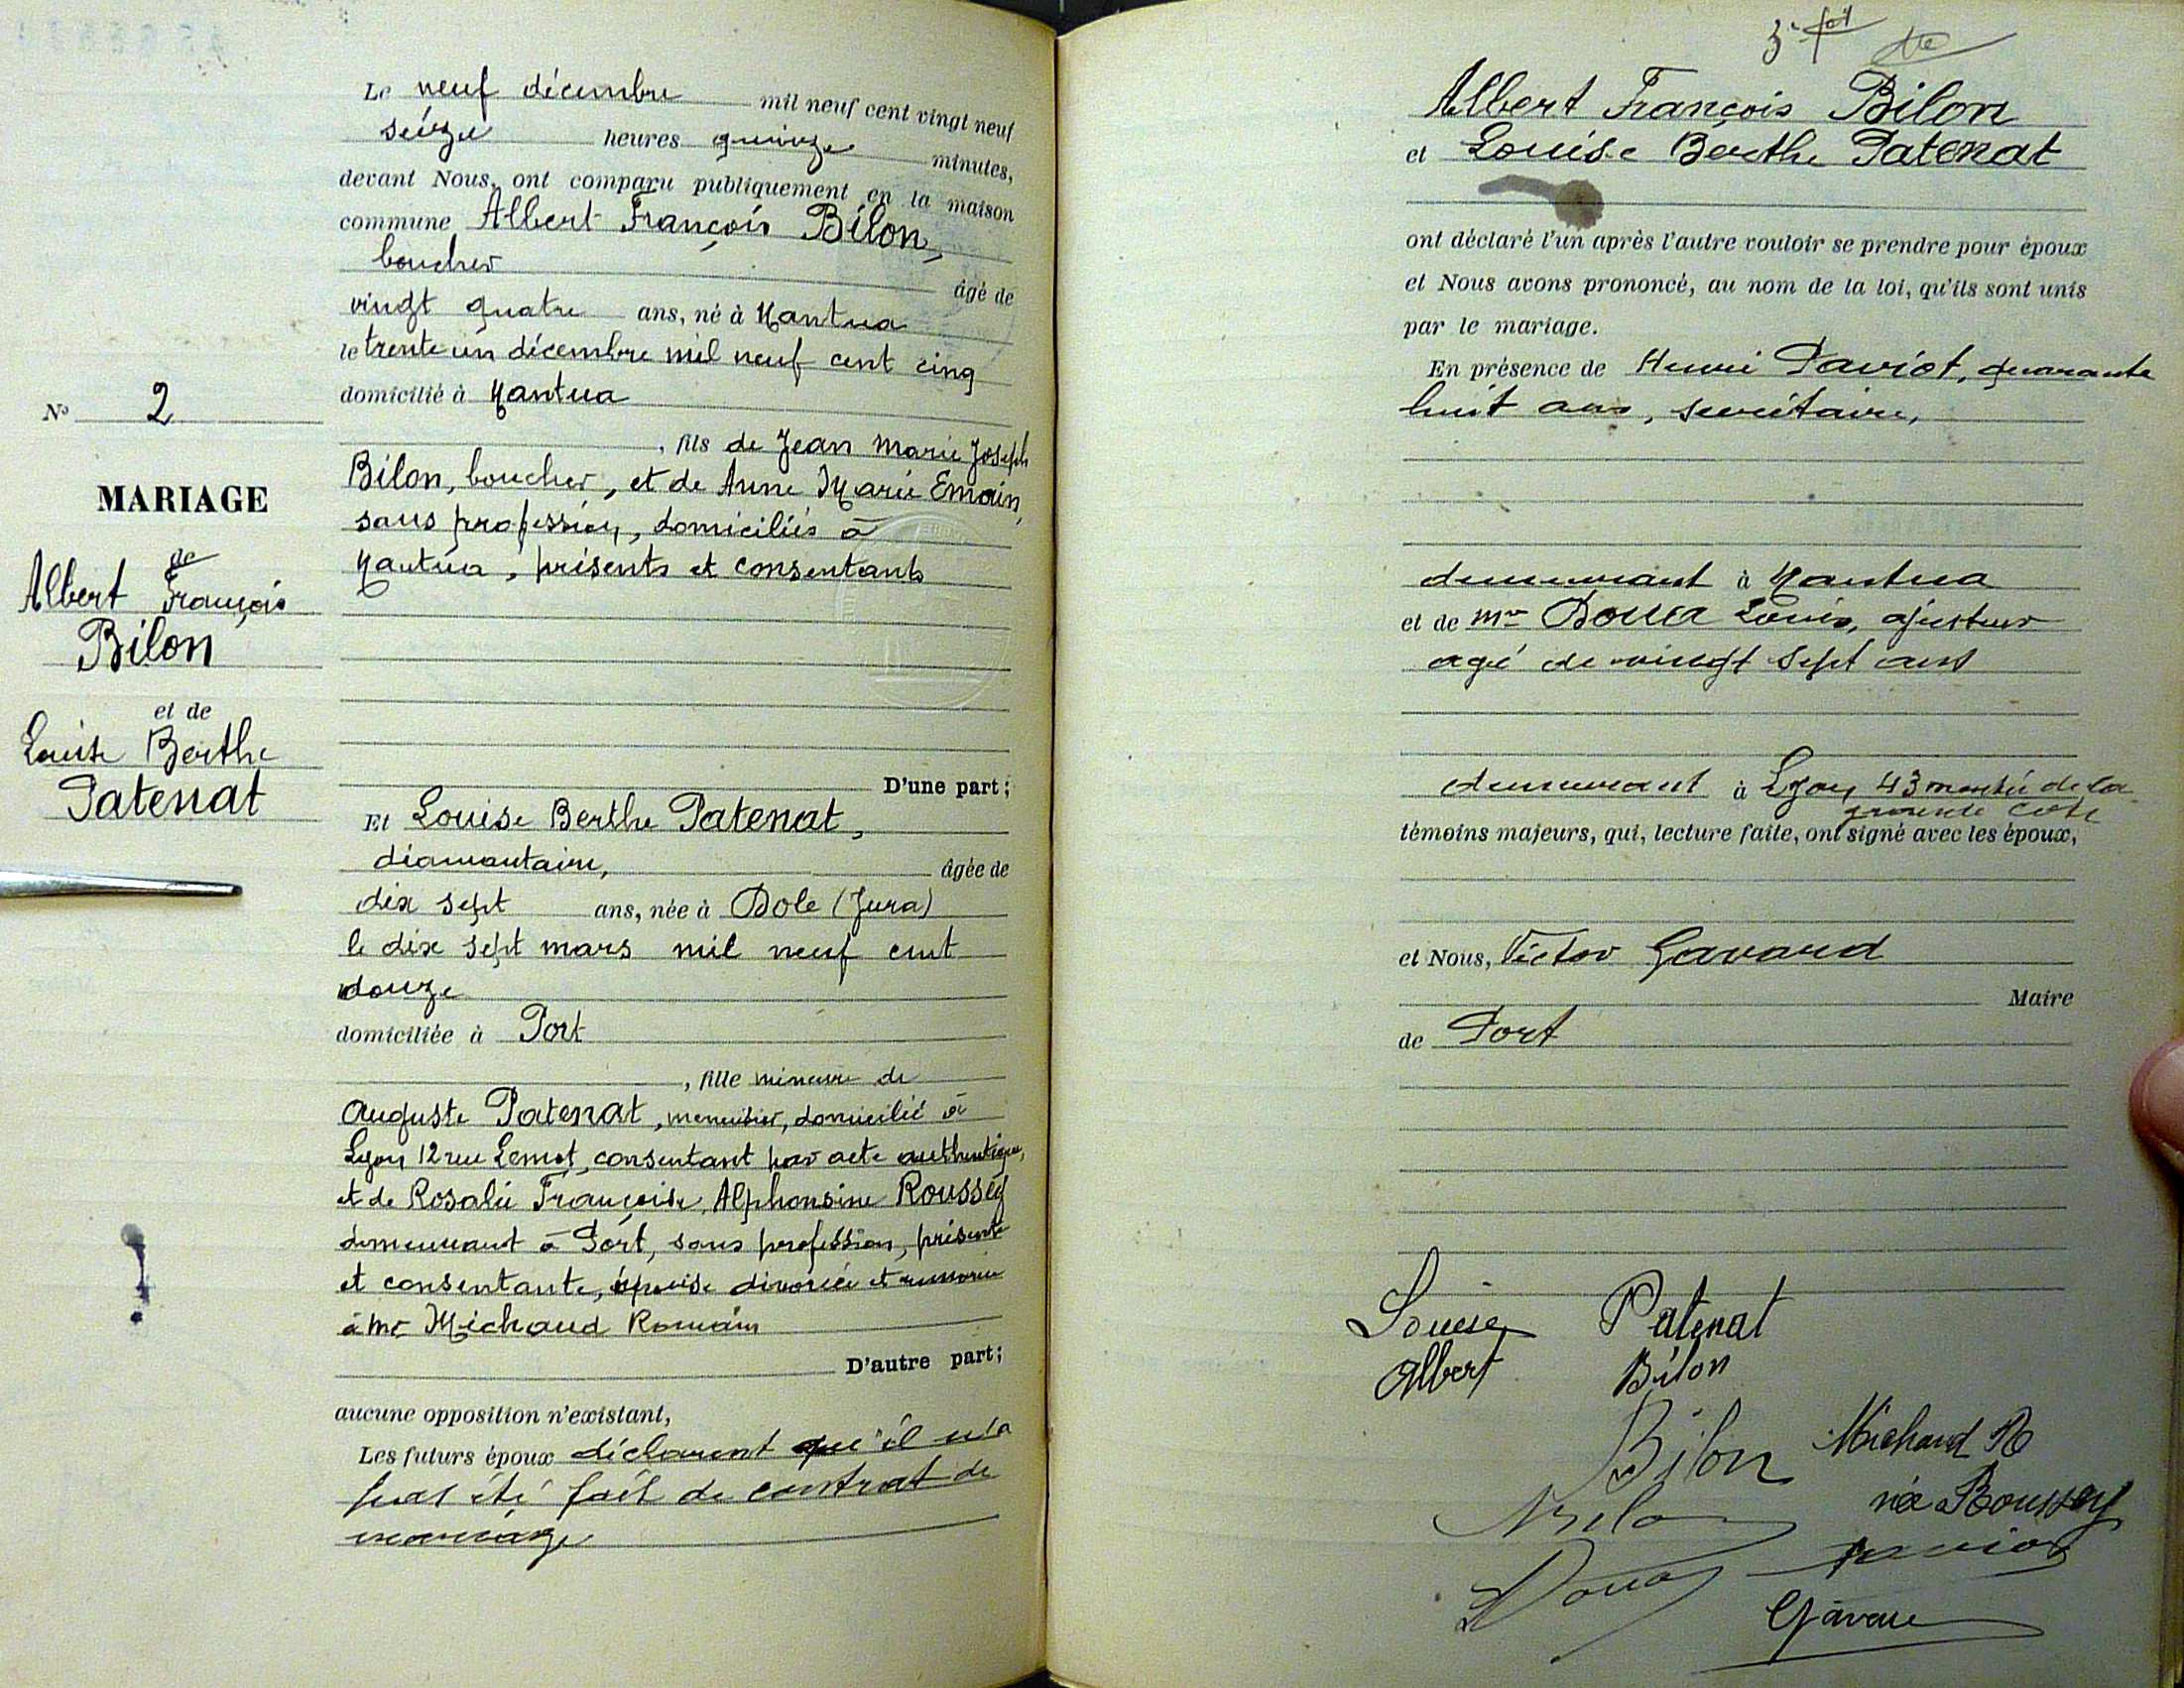 Le neuf décembre mil neuf cent vingt neuf
seize heures quinze minutes,
devant Nous, ont comparu publiquement en la maison
commune Albert François Bilon,
boucher âgé de
vingt quatre ans, né à Nantua
le trente un décembre mil neuf cent cinq
domicilié à Nantua
, fils de Jean Marie Joseph
Bilon, boucher, et de Anne Marie Emain,
sans profession, domiciliés à
Nantua, présents et consentants
D'une part;
Et Louise Berthe Patenat,
diamantaire, âgée de
dix sept ans, née à Dole (Jura)
le dix sept mars mil neuf cent
douze
domiciliée à Port
, fille mineure de
Auguste Patenat, menuisier, domicilié à
Lyon 12 rue Lemot, consentant par acte authentique,
et de Rosalie Françoise Alphonsine Roussey
demeurant à Port, sans profession, présente
et consentante, épouse divorcée et remariée
à Mr Michaud Romain
D'autre part;
aucune opposition n'existant,
Les futurs époux déclarent qu'il n'a
pas été fait de contrat de
mariage
No 2
MARIAGE
de
Albert François
Bilon
et de
Louise Berthe
Patenat
Albert François Bilon
et Louise Berthe Patenat
ont déclaré l'un après l'autre vouloir se prendre pour époux
et Nous avons prononcé, au nom de la loi, qu'ils sont unis
par le mariage.
En présence de Henri Paviot, quarante
huit ans, secrétaire,
demeurant à Nantua
et de Mr Doua Louis, ajusteur
agé de vingt sept ans
demeurant à Lyon 43 montée de la
grande cote
témoins majeurs, qui, lecture faite, ont signé avec les époux,
et Nous, Victor Gavard
Maire
de Port
Louise Patenat
Albert Bilon
Bilon Michaud R
née Roussey
Doua Paviot
Gavard